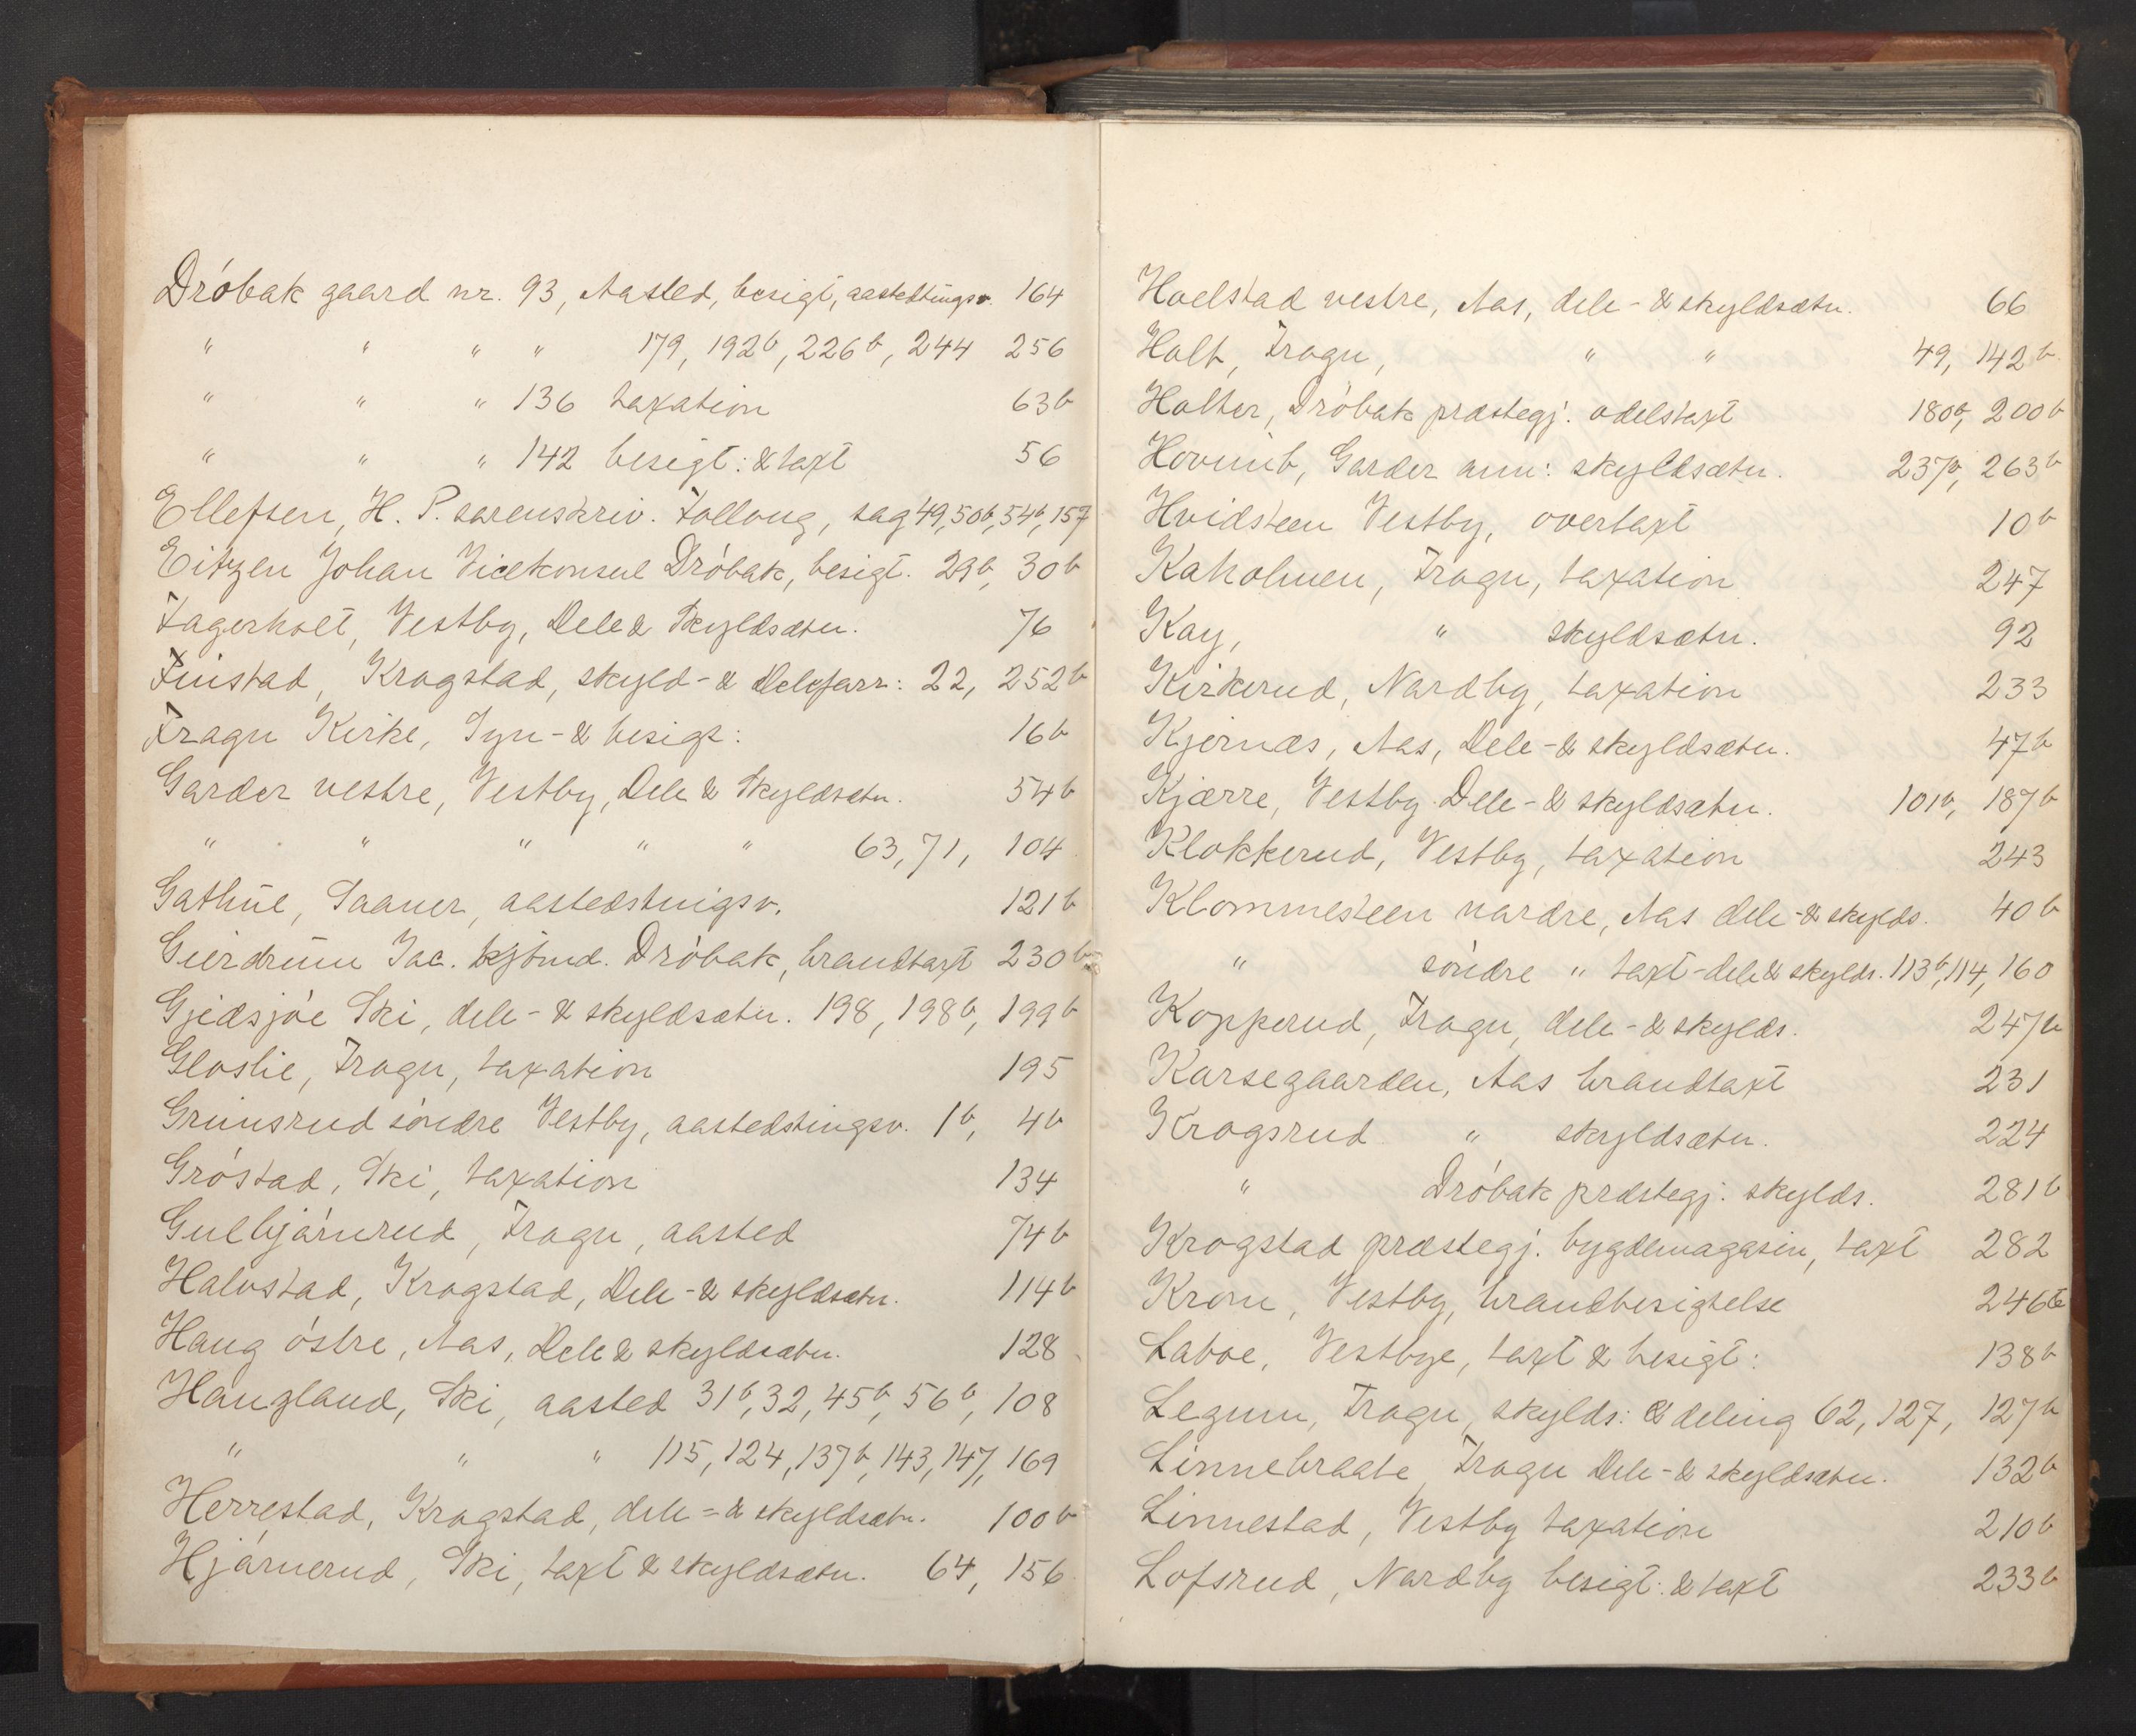 Dróbak gaard nr. 93, Aasted, besigt, aastedtingsv. 164
" " " " 179, 192b, 226b, 244 256
" " " 136 taxation 63b
" " " 142 besigt: & taxt 56
Ellefsen, H. P. sorenskriv. Folloug, sag 49, 50b, 54b, 157
Eitzen Johan Vicekonsul Dróbak, besigt. 29b, 30b
Fagerholt, Vestby, Dele & Skyldsætn. 76
Finstad, Krogstad, skyld- & Deleforr: 22, 252b
Frogn Kirke, Syn- & besigt: 16b
Garder vestre, Vestby, Dele & Skyldsætn. 54b
" " " " " 63, 71, 104
Gathue, Saaner, aastedstingsv. 121b
Gierdrum Jac. kjömd. Dróbak, brandtaxt 230b
Gjedsjóe Ski, dele- & skyldsætn. 198, 198b, 199b
Gloslie, Frogn, taxation 195
Grimsrud söndre Vestby, aastedstingsv. 1b, 4b
Gróstad, Ski, taxation 134
Gulbjárnrud, Frogn, aasted 74b
Halvstad, Krogstad, Dele- & skyldsætn. 114b
Haug östre, Aas, Dele & skyldsætn. 128
Haugland, Ski, aasted 31b, 32, 45b, 56b, 108
" " " 115, 124, 137b, 143, 147, 169
Herrestad, Krogstad, dele- & skyldsætn. 100b
Hjárnerud, Ski, taxt & skyldsætn. 64, 156
Hoelstad vestre, Aas, dele- & skyldsætn. 66
Holt, Frogn, " " 49, 142b
Holter, Dróbak præstegj. odelstaxt 180b, 200b
Hovind, Garder ann: skyldsætn. 237b, 263b
Hvidsteen Vestby, overtaxt 10b
Kaholmen, Frogn, taxation 247
Kay, " skyldsætn. 92
Kirkerud, Nordby, taxation 233
Kjernæs, Aas, Dele- & skyldsætn. 47b
Kjærre, Vestby Dele- & skyldsætn. 101b, 187b
Klokkerud, Vestby, taxation 243
Klommesteen nordre, Aas dele- & skylds. 40b
" söndre " taxt- dele & skylds. 113b, 114, 160
Kopperud, Frogn, dele- & skylds. 247b
Korsegaarden, Aas brandtaxt 231
Krogsrud " skyldsætn. 224
" Dróbak præstegj. skylds. 281b
Krogstad præstegj. bygdemagasin, taxt 282
Krom, Vestby, brandbesigtelse 246b
Laboe, Vestbye, taxt & besigt: 138b
Legum, Frogn, skylds: & deling 62, 127, 127b
Linnebraate Frogn Dele- & skyldsætn. 132b
Linnestad, Vestby taxation 210b
Lofsrud, Nordby besigt: & taxt 233b